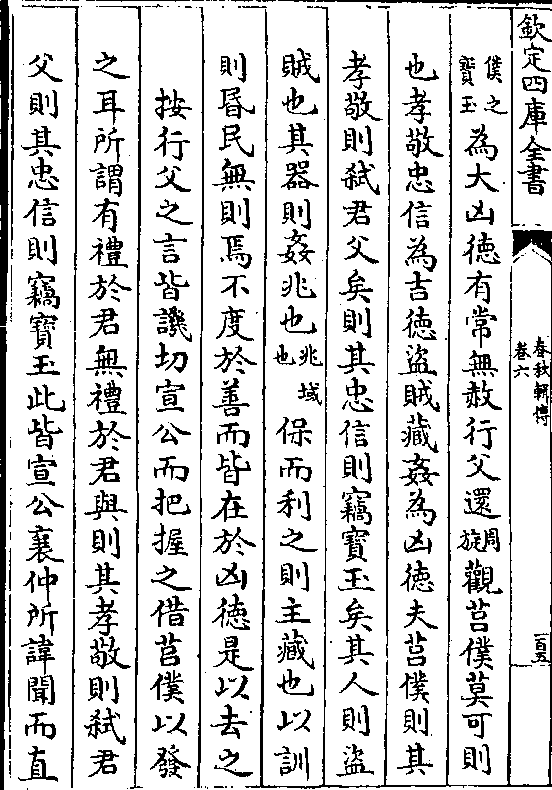 欽定四庫全書
春秋輯傳
卷六
百五
僕之寶玉為大凶德有常無赦行父還周旋觀莒僕莫可則
也孝敬忠信為吉德盜賊藏姦為凶德夫莒僕則其
孝敬則弑君父矣則其忠信則竊寶玉矣其人則盜
賊也其器則姦兆也兆域也保而利之則主藏也以訓
則昏民無則焉不度於善而皆在於凶德是以去之
按行父之言皆譏切宣公而把握之借莒僕以發
之耳所謂有禮於君無禮於君與則其孝敬則弑君
父則其忠信則竊寶玉此皆宣公襄仲所諱聞而直